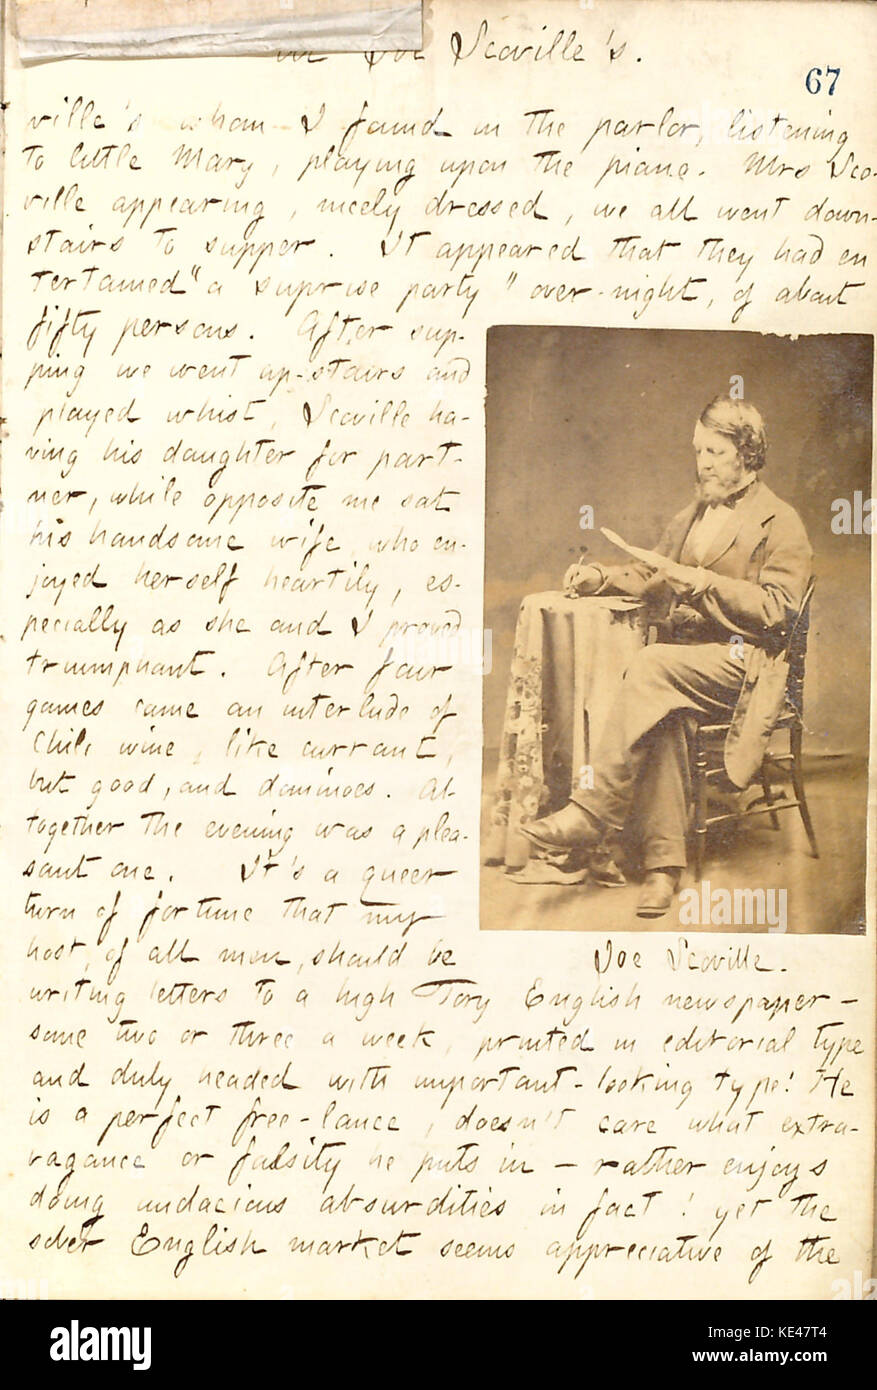 Joe Scoville's.
67
ville's whom I found in the parlor, listening
to little Mary, playing upon the piano. Mrs Sco-
ville appearing, nicely dressed, we all went down-
stairs to supper. It appeared that they had en
tertained "a suprise party" over-night, of about
fifty persons. After sup-
ping we went up-stairs and
played whist, Scoville ha-
ving his daughter for part-
ner, while opposite me sat
his handsome wife, who en-
joyed herself heartily, es-
pecially as she and I proved
triumphant. After four
games came an interlude of
Chili wine, like currant,
but good, and dominoes. Al-
together the evening was a plea-
sant one. It's a queer
turn of fortune that my
host, of all men, should be
Joe Scoville.
writing letters to a high Tory English newspaper —
some two or three a week, printed in editorial type
and duly headed with important-looking type! He
is a perfect free-lance, doesn't care what extra-
vagance or falsity he puts in — rather enjoys
doing audacious absurdities in fact! yet the
sober English market seems appreciative of the
alamy
Image ID: KE47T4
www.alamy.com